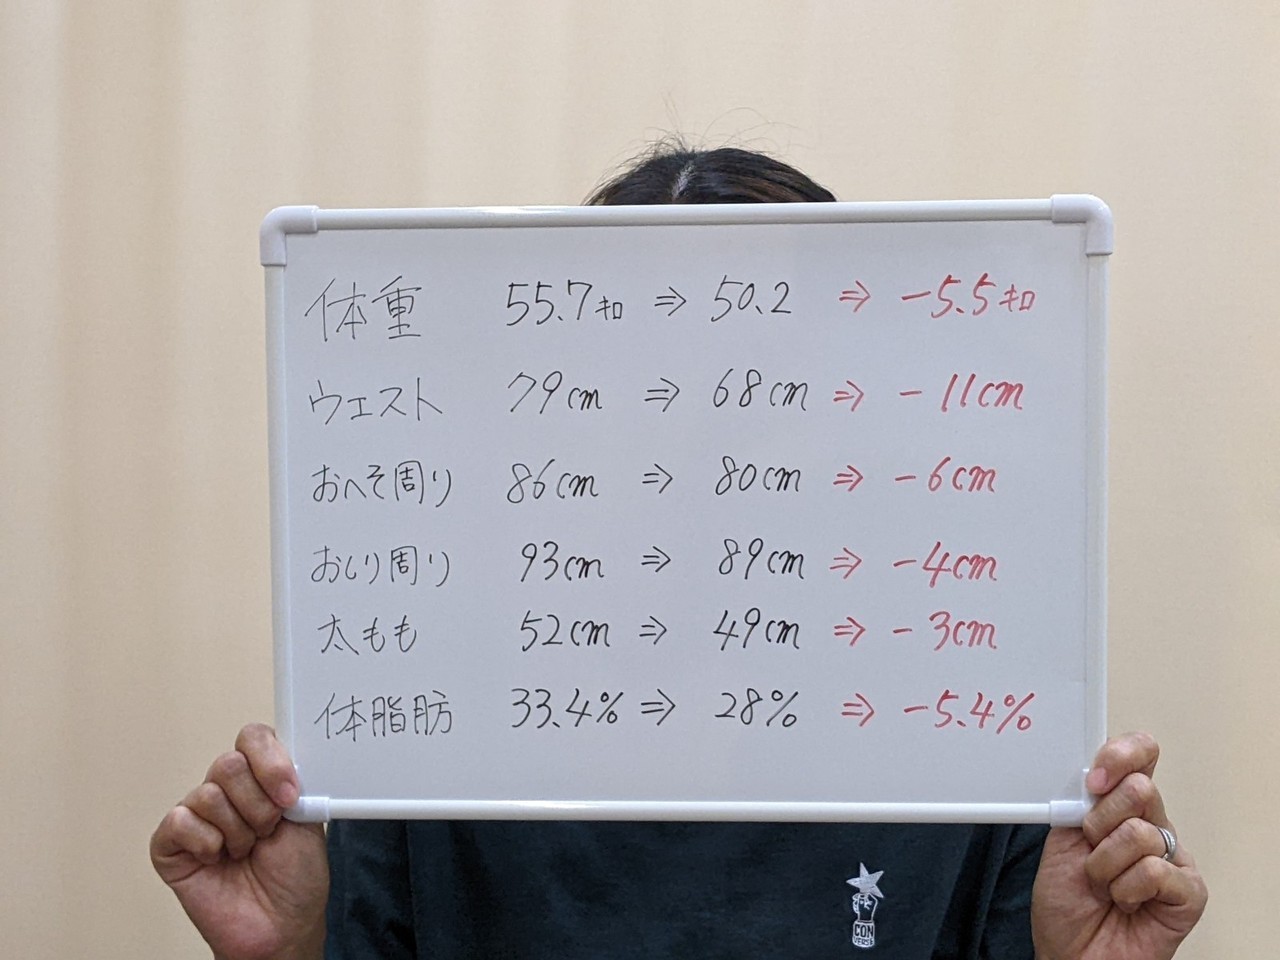 体重 55.7キロ ⇒ 50.2 ⇒ -5.5キロ
ウエスト 79cm ⇒ 68cm ⇒ -11cm
おへそ周り 86cm ⇒ 80cm ⇒ -6cm
おしり周り 93cm ⇒ 89cm ⇒ -4cm
太もも 52cm ⇒ 49cm ⇒ -3cm
体脂肪 33.4% ⇒ 28% ⇒ -5.4%
CON
VERSE